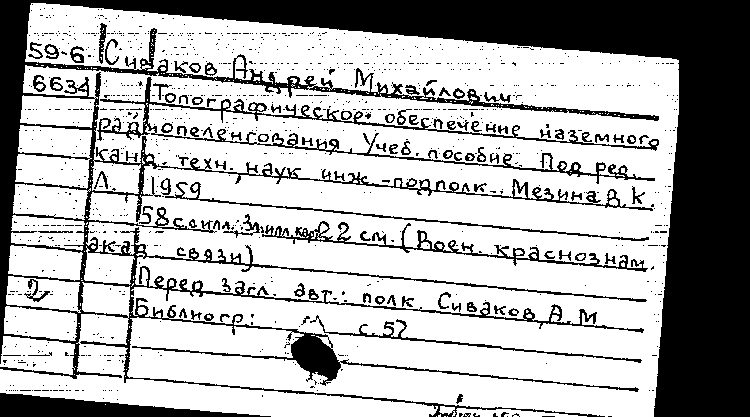 59-6. Сиваков Андрей Михайлович
6634 Топографическое обеспечение наземного
радиопеленгования. Учеб. пособие. Под ред.
канд. техн. наук инж.-подполк. Мезина В. К.
Л., 1959.
58 с. с илл.; 3 л. илл., карт. 22 см. (Воен. краснознам.
акад. связи)
Перед загл. авт.: полк. Сиваков, А. М.
2
Библиогр.: с. 57